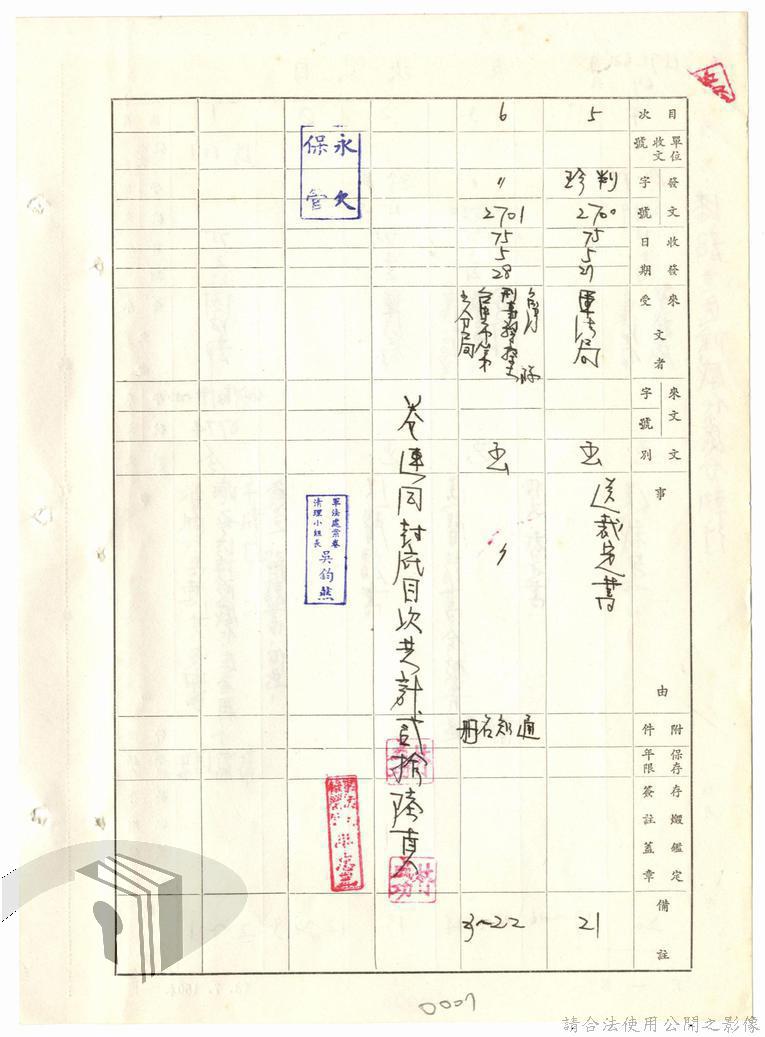 目次
單位收文號
發文字號
收發日期
來文受文者
來文字號
文別
事由
附件
保存年限
存燬鑑定簽註蓋章
備註
5
判
2700
75
5
21
軍法局
函
送裁定書
21
6
〃
2701
75
5
28
函
〃
通知名冊
22
卷連同封底目次共計貳拾陸頁
永久保管
軍法處案卷清理小組長
吳鈞燕
0007
請合法使用公開之影像